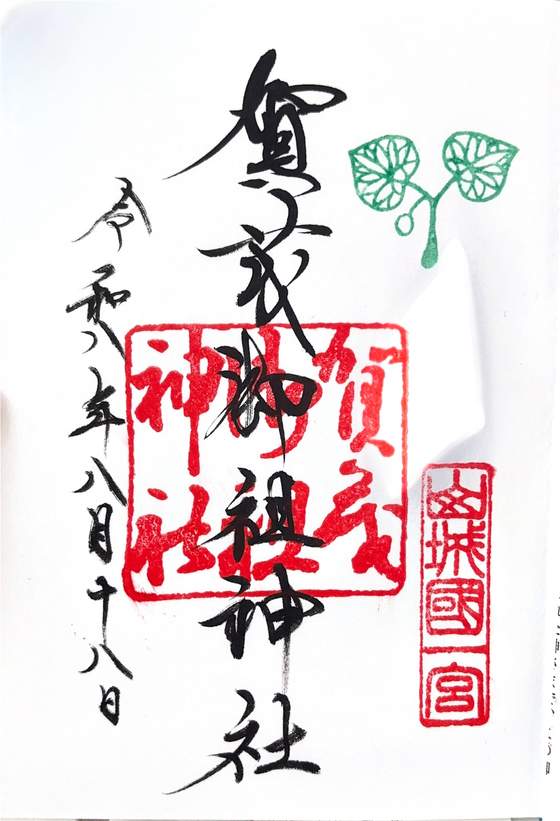 山城國一宮
賀茂御祖神社
賀茂
御祖
神社
令和八年八月十八日